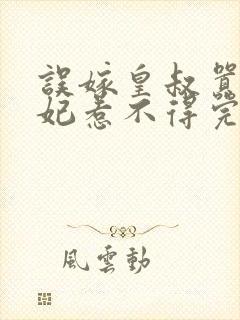 誤嫁皇叔
妃惹不得完
風雲動